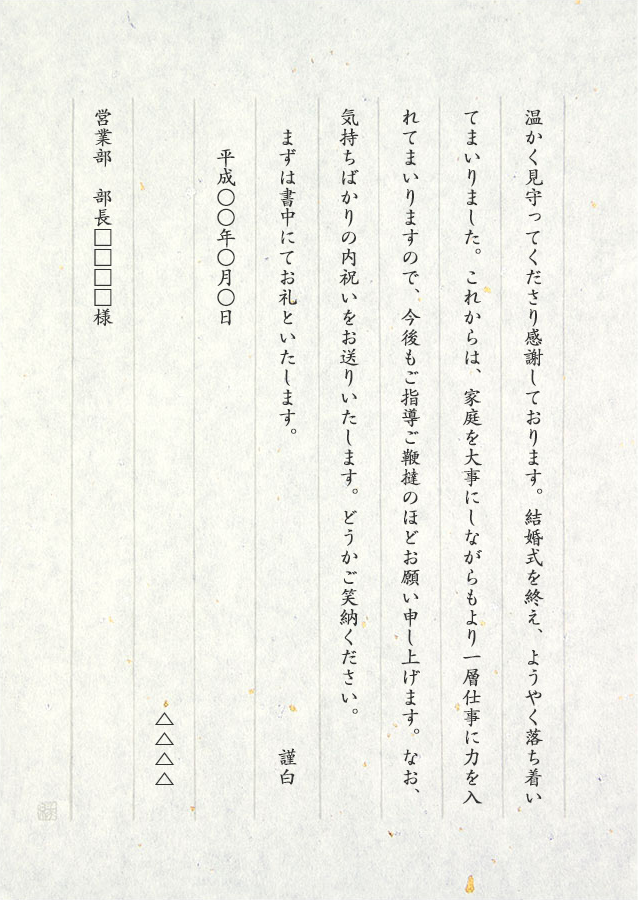 温かく見守ってくださり感謝しております。結婚式を終え、ようやく落ち着い
てまいりました。これからは、家庭を大事にしながらもより一層仕事に力を入
れてまいりますので、今後もご指導ご鞭撻のほどお願い申し上げます。なお、
気持ちばかりの内祝いをお送りいたします。どうかご笑納ください。
まずは書中にてお礼といたします。 謹白
平成〇〇年〇月〇日
△△△△
営業部 部長□□□□様